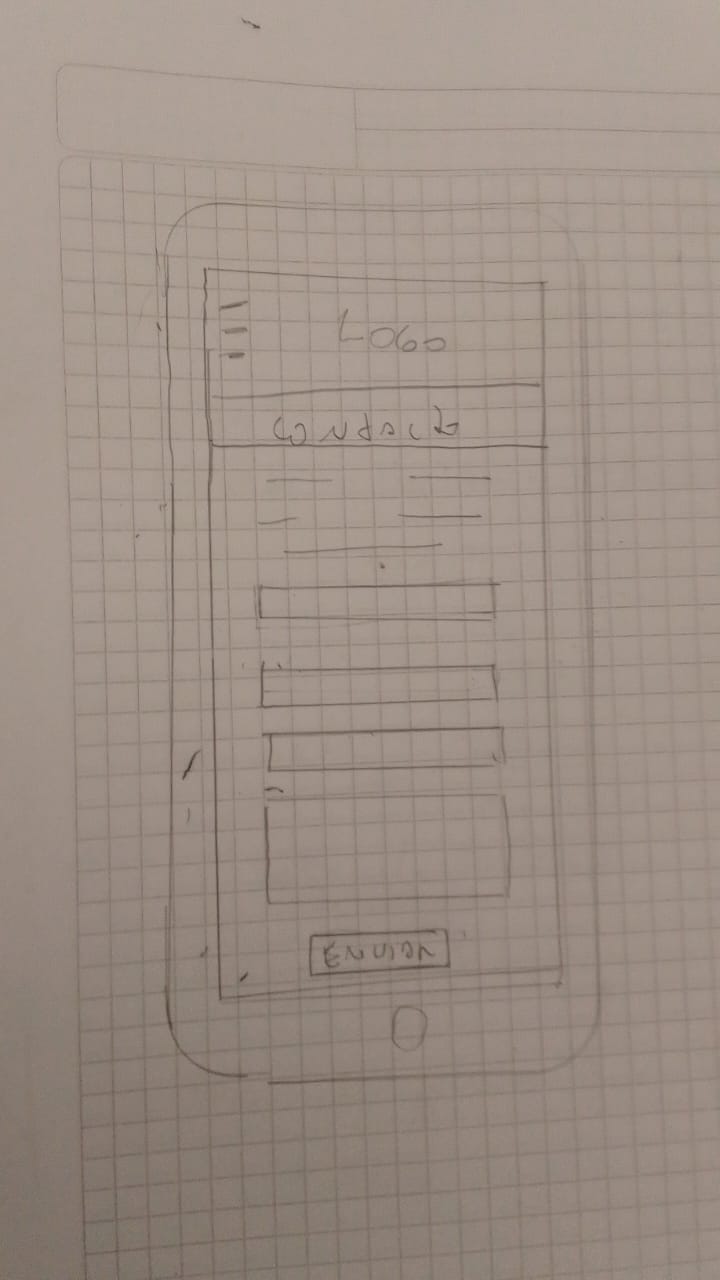 LOGO
CONTACTO
ENVIAR